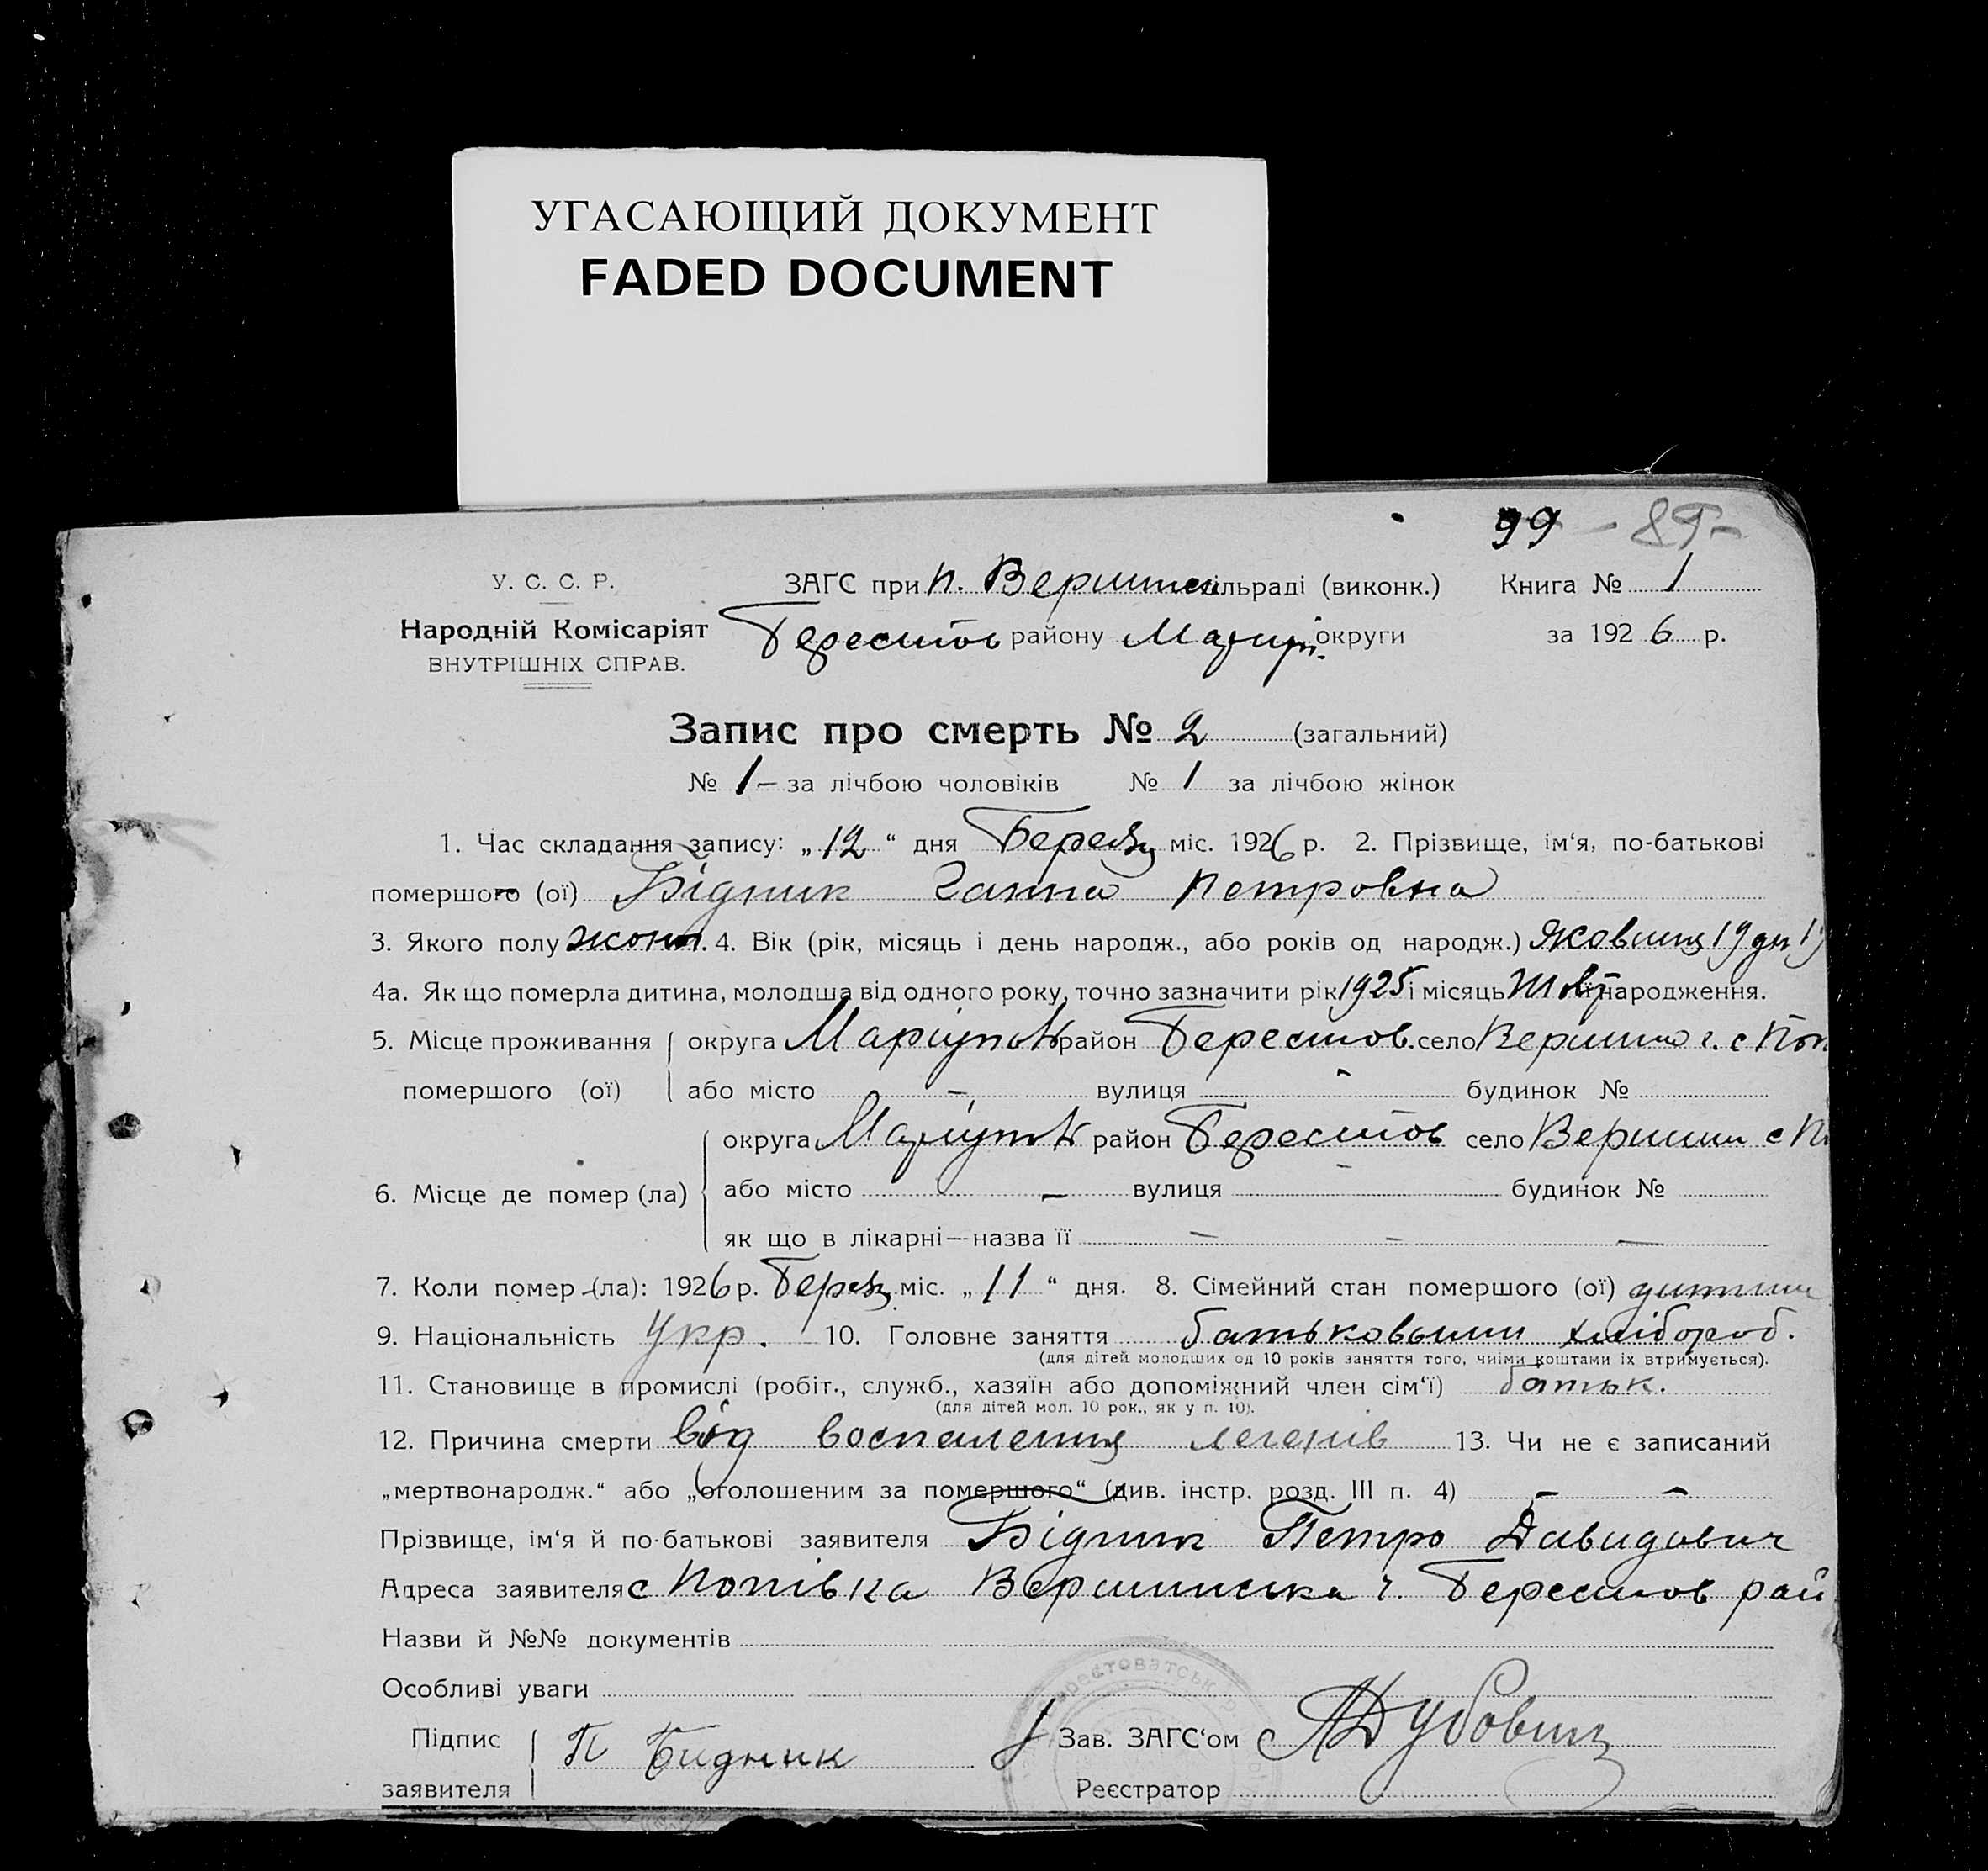 УГАСАЮЩИЙ ДОКУМЕНТ
FADED DOCUMENT
99 - 89-
У. С. С. Р.
ЗАГС при п. Вершинсільраді (виконк.) Книга № 1
Народній Комісаріят
Берестов району Маріуп. округи за 1926 р.
ВНУТРІШНІХ СПРАВ.
Запис про смерть № 2 (загальний)
№ 1 – за лічбою чоловіків № 1 за лічбою жінок
1. Час складання запису: „12“ дня Березня міс. 1926 р. 2. Прізвище, ім‘я, по-батькові
помершого (ої) Бідник Ганна Петровна
3. Якого полу жоноч. 4. Вік (рік, місяць і день народж., або років од народж.) Жовтня 19 дн
4а. Як що померла дитина, молодша від одного року, точно зазначити рік 1925 і місяць Жовт народження.
5. Місце проживання округа Маріупол район Берестов. село Вершино г. с Поп
помершого (ої) або місто – вулиця - будинок №
округа Маріупол район Берестов село Вершин с П
6. Місце де помер (ла) або місто – вулиця – будинок №
як що в лікарні—назва її – – –
7. Коли помер (ла): 1926 р. Березня міс. „11“ дня. 8. Сімейний стан помершого (ої) дитина
9. Національність Укр. 10. Головне заняття батьковыми хлібороб.
(для дітей молодших од 10 років заняття того, чиїми коштами їх втримується).
11. Становище в промислі (робіт., служб., хазяїн або допоміжний член сім‘ї) батьк.
(для дітей мол. 10 рок., як у п. 10).
12. Причина смерти від воспаления легенів 13. Чи не є записаний
„мертвонародж.“ або „оголошеним за помершого“ (див. інстр. розд. III п. 4) – –
Прізвище, ім‘я й по-батькові заявителя Бідник Петро Давидович
Адреса заявителя с Попівка Вершинська г. Берестов рай
Назви й №№ документів
Особливі уваги
Підпис П Бидник Зав. ЗАГС‘ом Дубовик
заявителя Реєстратор